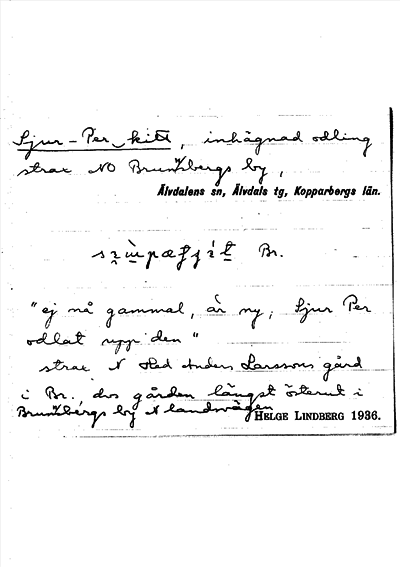 Sjur-Per-kitt, inhägnad odling
strax NO Brunnbergs by,
Älvdalens sn, Älvdals tg, Kopparbergs län.
Br.
"ej nå gammal, är ny, Sjur Per
odlat upp den"
strax N Hed Anders Larssons gård
i Br., dvs gården längst österut i
Brunnbergs by N landsvägen
HELGE LINDBERG 1936.